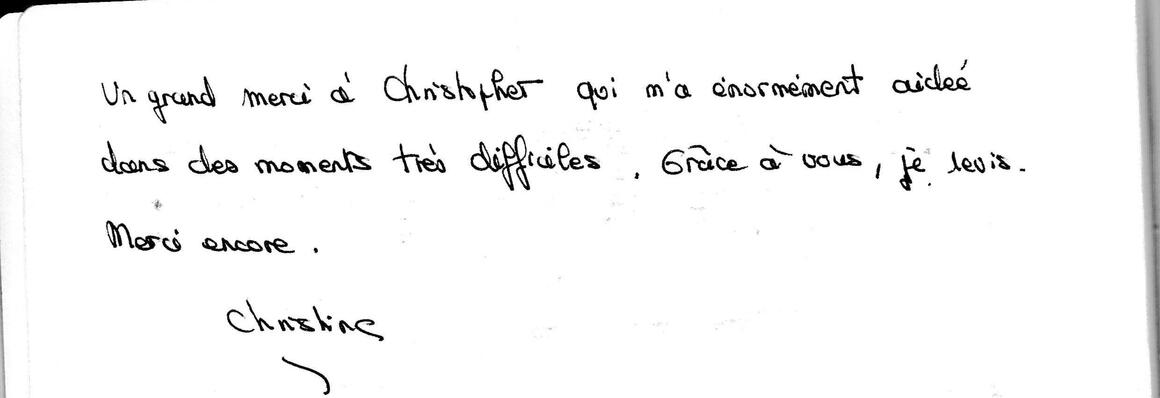 Un grand merci à Christopher qui m'a énormément aidée
dans des moments très difficiles. Grâce à vous, je revis.
Merci encore.
Christine